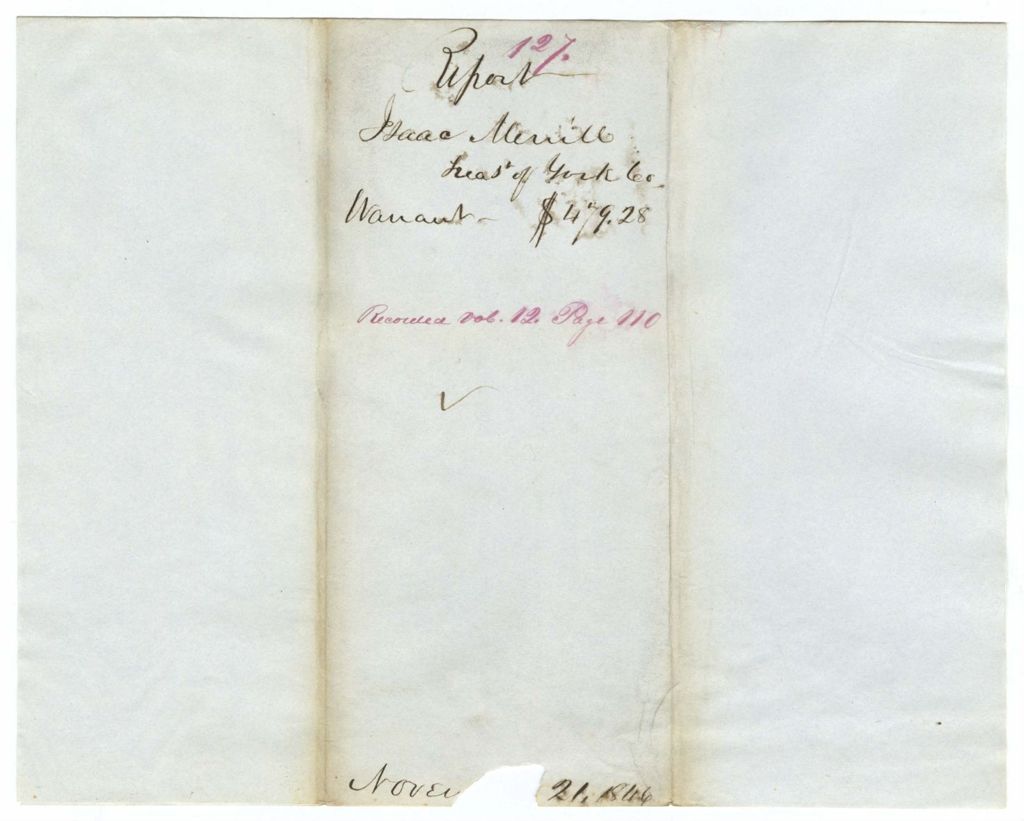 127.
Report
Isaac Merrill
Treasr of York Co.
Warrant - $479.28
Recorded vol. 12. Page 110
Novem 21, 1846